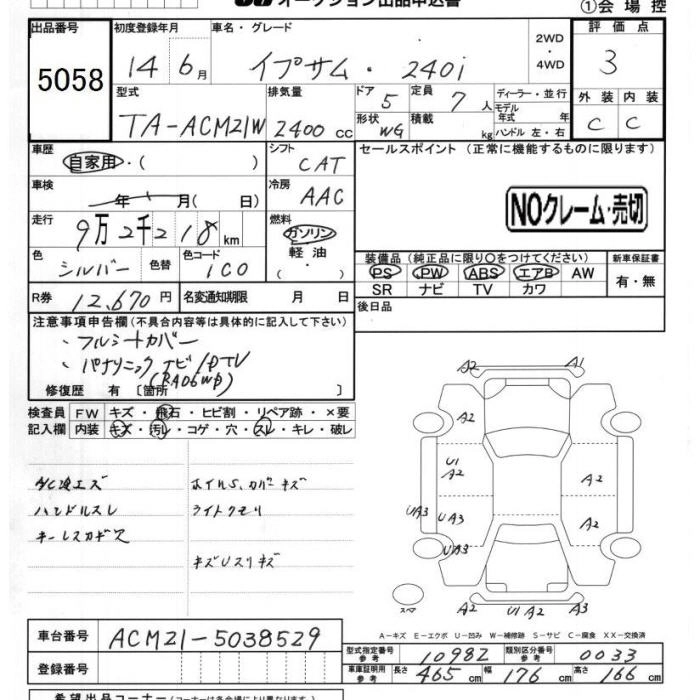 オークション出品申込書
①会場控
出品番号
5058
初度登録年月
14 6月
車名・グレード
イプサム・240i
2WD
・
4WD
評価点
3
型式
TA-ACM21W
排気量
2400 cc
ドア
5
定員
7人
形状
WG
積載
kg
ディーラー・並行
モデル
年式 年
ハンドル 左・右
外装 内装
C C
車歴
自家用・( )
シフト
CAT
セールスポイント (正常に機能するものに限ります)
車検
年 月( 日)
冷房
AAC
NOクレーム・売切
走行
9万2千218km
燃料
ガソリン
軽油
( )
色
シルバー
色替
色コード
1C0
装備品 (純正品に限り○をつけてください)
新車保証書
PS PW ABS エアB AW
有・無
SR ナビ TV カワ
R券
12,670円
名変通知期限 月 日
後日品
注意事項申告欄(不具合内容等は具体的に記入して下さい)
・フルシートカバー
・パナソニック ナビ/DTV
修復歴 有〔箇所 〕
検査員
記入欄
FW キズ・飛石・ヒビ割・リペア跡・×要
内装 キズ・汚レ・コゲ・穴・スレ・キレ・破レ
ハンドルスレ
キーレスカギス
ホイルS,カバーキズ
ライトクモリ
キズUスリキズ
A2 A1
A2
U1
A2
A2
UA3 UA3
A2
UA3
スペア
A2 U1 A2 A3
A-キズ E-エクボ U-凹み W-補修跡 S-サビ C-腐食 XX-交換済
車台番号
ACM21-5038529
登録番号
型式指定番号
参考
10982
類別区分番号
参考
0033
車庫証明用
参考
長さ 465cm 幅 176cm 高さ 166cm
希望出品コーナー(コーナーは各会場により異なります)